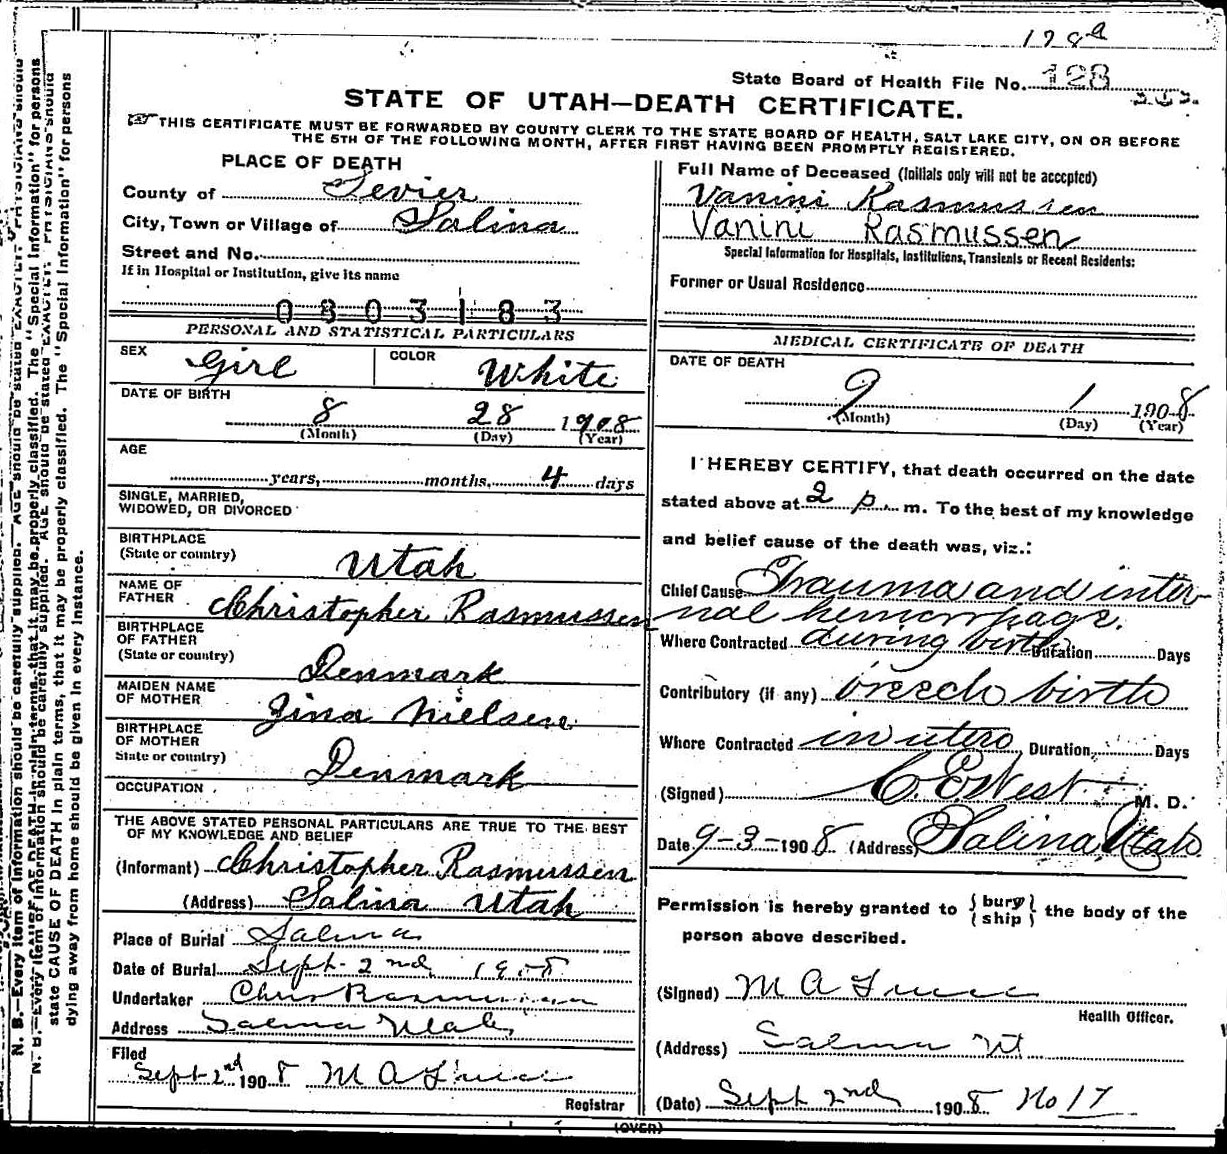 State Board of Health File No. 128
STATE OF UTAH—DEATH CERTIFICATE.
THIS CERTIFICATE MUST BE FORWARDED BY COUNTY CLERK TO THE STATE BOARD OF HEALTH, SALT LAKE CITY, ON OR BEFORE
THE 5TH OF THE FOLLOWING MONTH, AFTER FIRST HAVING BEEN PROMPTLY REGISTERED.
PLACE OF DEATH
County of Sevier
City, Town or Village of Salina
Street and No.
If in Hospital or Institution, give its name
0803183
PERSONAL AND STATISTICAL PARTICULARS
SEX Girl COLOR White
DATE OF BIRTH
8 28 1908
(Month) (Day) (Year)
AGE
years, months, 4 days
SINGLE, MARRIED,
WIDOWED, OR DIVORCED
BIRTHPLACE
(State or country) Utah
NAME OF
FATHER Christopher Rasmussen
BIRTHPLACE
OF FATHER
(State or country) Denmark
MAIDEN NAME
OF MOTHER Zina Nielsen
BIRTHPLACE
OF MOTHER
State or country) Denmark
OCCUPATION
THE ABOVE STATED PERSONAL PARTICULARS ARE TRUE TO THE BEST
OF MY KNOWLEDGE AND BELIEF
(Informant) Christopher Rasmussen
(Address) Salina Utah
Place of Burial Salina
Date of Burial Sept 2nd 1908
Undertaker Chris Rasmussen
Address Salina Utah
Filed
Sept 2nd 1908 M A
Registrar
Full Name of Deceased (Initials only will not be accepted)
Vanini Rasmussen
Vanini Rasmussen
Special Information for Hospitals, Institutions, Transients or Recent Residents:
Former or Usual Residence
MEDICAL CERTIFICATE OF DEATH
DATE OF DEATH
9 1 1908
(Month) (Day) (Year)
I HEREBY CERTIFY, that death occurred on the date
stated above at 2 p. m. To the best of my knowledge
and belief cause of the death was, viz.:
Chief Cause Trauma and inter-
nal hemorrhage.
Where Contracted during birth Duration Days
Contributory (if any) breech birth
Where Contracted in utero Duration, Days
(Signed) C. E. West M. D.
Date 9-3-1908 (Address) Salina, Utah
Permission is hereby granted to {bury ship} the body of the
person above described.
(Signed) M A
Health Officer.
(Address) Salina Ut
(Date) Sept 2nd 1908 No 17
(OVER)
N. B.—Every item of information should be carefully supplied. AGE should be stated EXACTLY. PHYSICIANS should
state CAUSE OF DEATH in plain terms, that it may be properly classified. The "Special Information" for persons
dying away from home should be given in every instance.